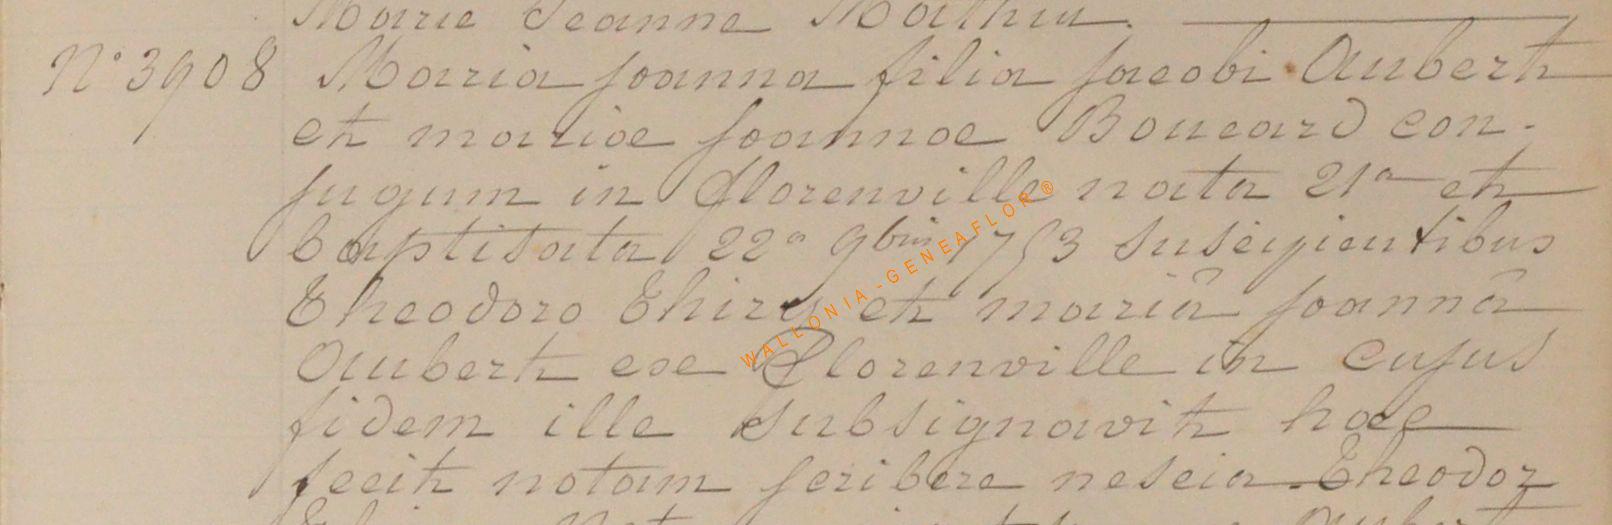 Marie Jeanne Mathu.
N° 3908 Maria Joanna filia Jacobi Aubert
et mariae Joannae Boucard con-
jugum in Florenville nata 21a et
baptisata 22a 9bris 1753 suscipientibus
Theodoro Thiry et mariâ Joannâ
Aubert exe Florenville in cujus
fidem ille subsignavit haec
fecit notam scribere nescia. Theodor
WALLONIA-GENEAFLOR®